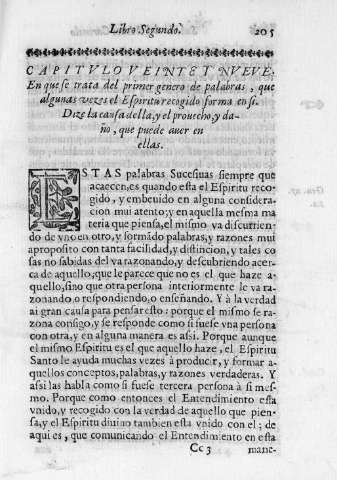 Libro Segundo. 205
CAPITVLO VEINTE Y NVEVE.
En que se trata del primer genero de palabras, que
algunas vezes el Espiritu recogido forma en si.
Dize la causa della, y el prouecho, y da-
ño, que puede auer en
ellas.
ESTAS palabras Sucesiuas siempre que
acaecen, es quando esta el Espiritu reco
gido, y embeuido en alguna considera
cion mui atento; y en aquella mesma ma
teria que piensa, el mismo va discurrien
do de vno en otro, y formãdo palabras, y razones mui
aproposito con tanta facilidad, y distincion, y tales co
sas no sabidas del va razonando, y descubriendo acer-
ca de aquello, que le parece que no es el que haze a
quello, sino que otra persona interiormente le va ra
zonando o respondiendo, o enseñando. Y à la verdad
ai gran causa para pensar esto: porque el mismo se ra
zona consigo, y se responde como si fuese vna persona
con otra, y en alguna manera es assi. Porque aunque
el mismo Espiritu es el que aquello haze, el Espiritu
Santo le ayuda muchas vezes à producir, y formar a-
quellos conceptos, palabras, y razones verdaderas. Y
assi las habla como si fuese tercera persona à si mes-
mo. Porque como entonces el Entendimiento esta
vnido, y recogido con la verdad de aquello que pien-
sa, y el Espiritu diuino tambien esta vnido con el; de
aqui es, que comunicando el Entendimiento en esta
Cc 3 mane-